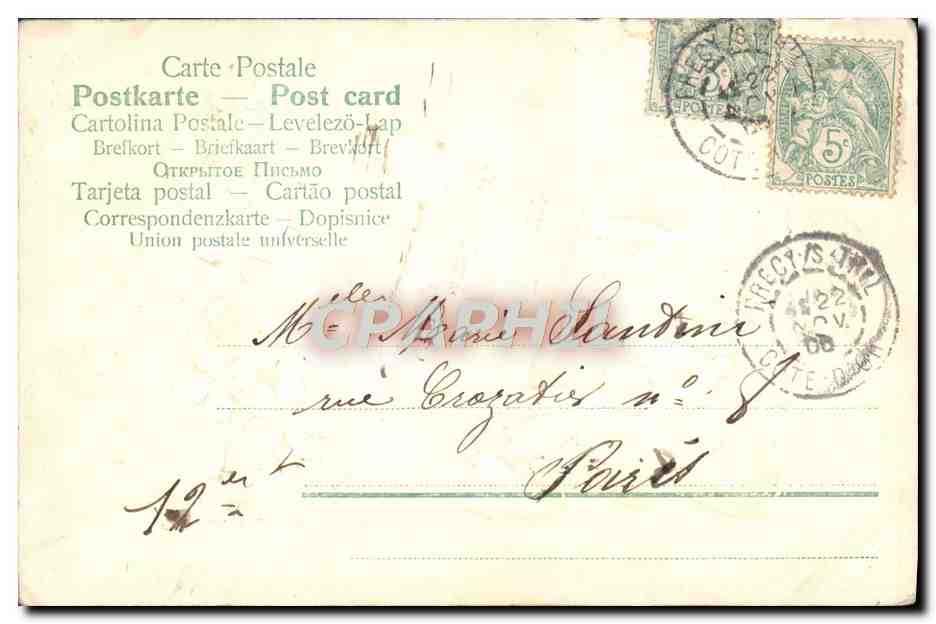 Carte Postale
Postkarte — Post card
Cartolina Postale – Levelezö-Lap
Brefkort – Briefkaart – Brevkort
Открытое Письмо
Tarjeta postal — Cartão postal
Correspondenzkarte – Dopisnice
Union postale universelle
5c
POSTES
5c
POSTES
22
COTE
22
NOV.
06
COTE D'OR
CPARHAMA
Mlle Marie
rue Crozatier no 8
Paris
12 er t